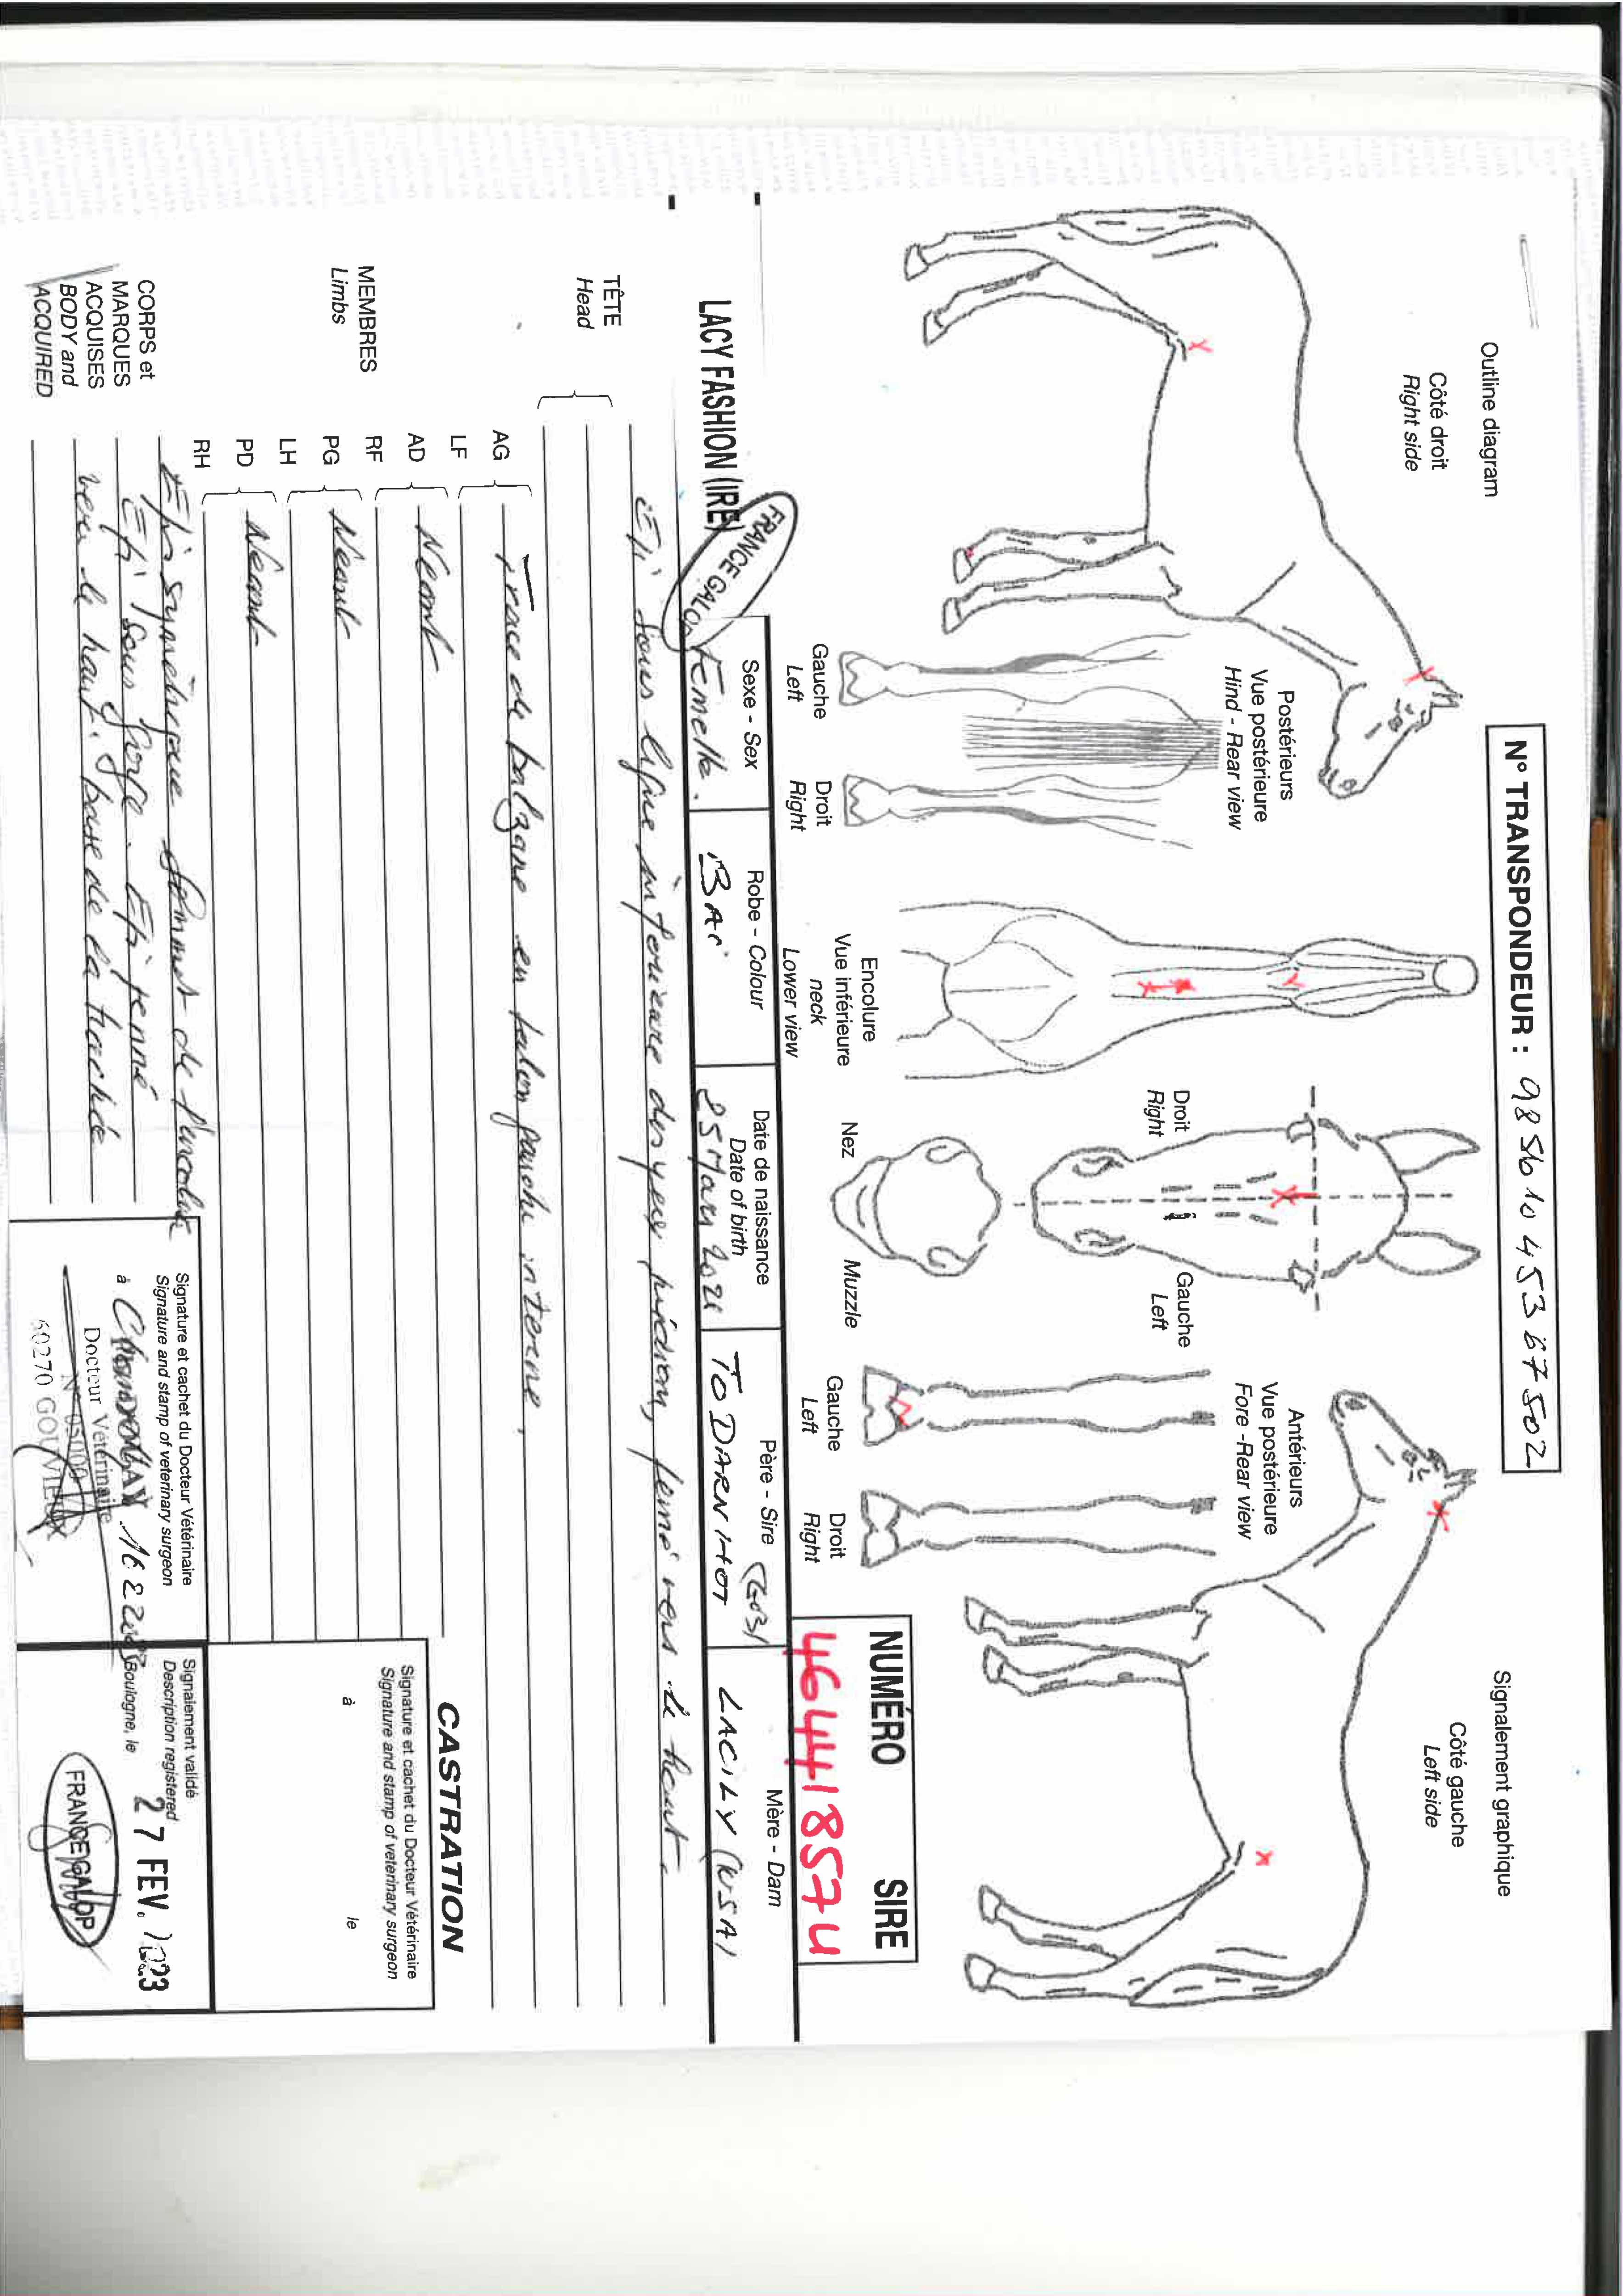 Outline diagram
N° TRANSPONDEUR : 98561045367502
Signalement graphique
Côté droit
Right side
Côté gauche
Left side
Postérieurs
Vue postérieure
Hind - Rear view
Gauche
Left
Droit
Right
Encolure
Vue inférieure
neck
Lower view
Droit
Right
Gauche
Left
Nez
Muzzle
Antérieurs
Vue postérieure
Fore -Rear view
Gauche
Left
Droit
Right
NUMÉRO SIRE
46441857U
LACY FASHION (IRE)
FRANCE GALOP
Sexe - Sex
Femelle.
Robe - Colour
BAi
Date de naissance
Date of birth
25 Mars 2021
Père - Sire
TO DARN HOT
Mère - Dam
LACILY (USA)
TÊTE
Head
Epi sous ligne inférieure des yeux, médian, penné vers le haut.
MEMBRES
Limbs
AG
LF
Trace de balzane en talon gauche interne.
AD
RF
Néant
PG
LH
Néant
PD
RH
Néant
CORPS et
MARQUES
ACQUISES
BODY and
ACQUIRED
Epi symétrique sommet de l'encolure
Epi sous gorge. Epi penné
vers le haut, base de la trachée
CASTRATION
Signature et cachet du Docteur Vétérinaire
Signature and stamp of veterinary surgeon
à le
Signature et cachet du Docteur Vétérinaire
Signature and stamp of veterinary surgeon
à
Docteur Vétérinaire
60270 GOUVIEUX
Signalement validé
Description registered
Boulogne, le
27 FEV. 2023
FRANCE GALOP